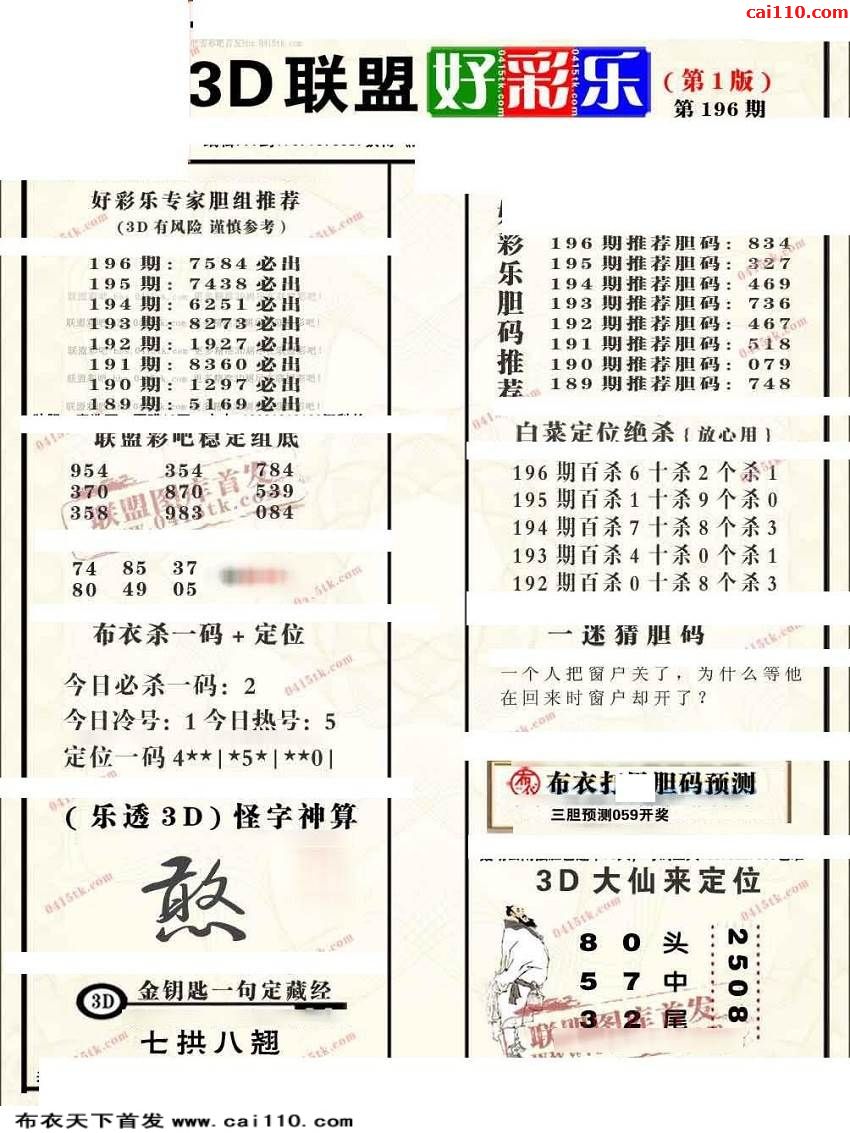 cai110.com
3D联盟 好彩乐 (第1版)
第196期
好彩乐专家胆组推荐
(3D有风险 谨慎参考)
196期: 7584必出
195期: 7438必出
194期: 6251必出
193期: 8273必出
192期: 1927必出
191期: 8360必出
190期: 1297必出
189期: 5169必出
联盟彩吧稳定组底
954 354 784
370 870 539
358 983 084
74 85 37
80 49 05
布衣杀一码+定位
今日必杀一码: 2
今日冷号: 1 今日热号: 5
定位一码 4**|*5*|**0|
(乐透3D) 怪字神算
憨
3D 金钥匙一句定藏经
七拱八翘
彩乐胆码推荐
196期推荐胆码: 834
195期推荐胆码: 327
194期推荐胆码: 469
193期推荐胆码: 736
192期推荐胆码: 467
191期推荐胆码: 518
190期推荐胆码: 079
189期推荐胆码: 748
白菜定位绝杀{放心用}
196期百杀6十杀2个杀1
195期百杀1十杀9个杀0
194期百杀7十杀8个杀3
193期百杀4十杀0个杀1
192期百杀0十杀8个杀3
一迷猜胆码
一个人把窗户关了，为什么等他
在回来时窗户却开了？
布衣 胆码预测
三胆预测059开奖
3D大仙来定位
8 0 头
5 7 中
3 2 尾
2508
联盟图库首发
www.0415tk.com
布衣天下首发 www.cai110.com